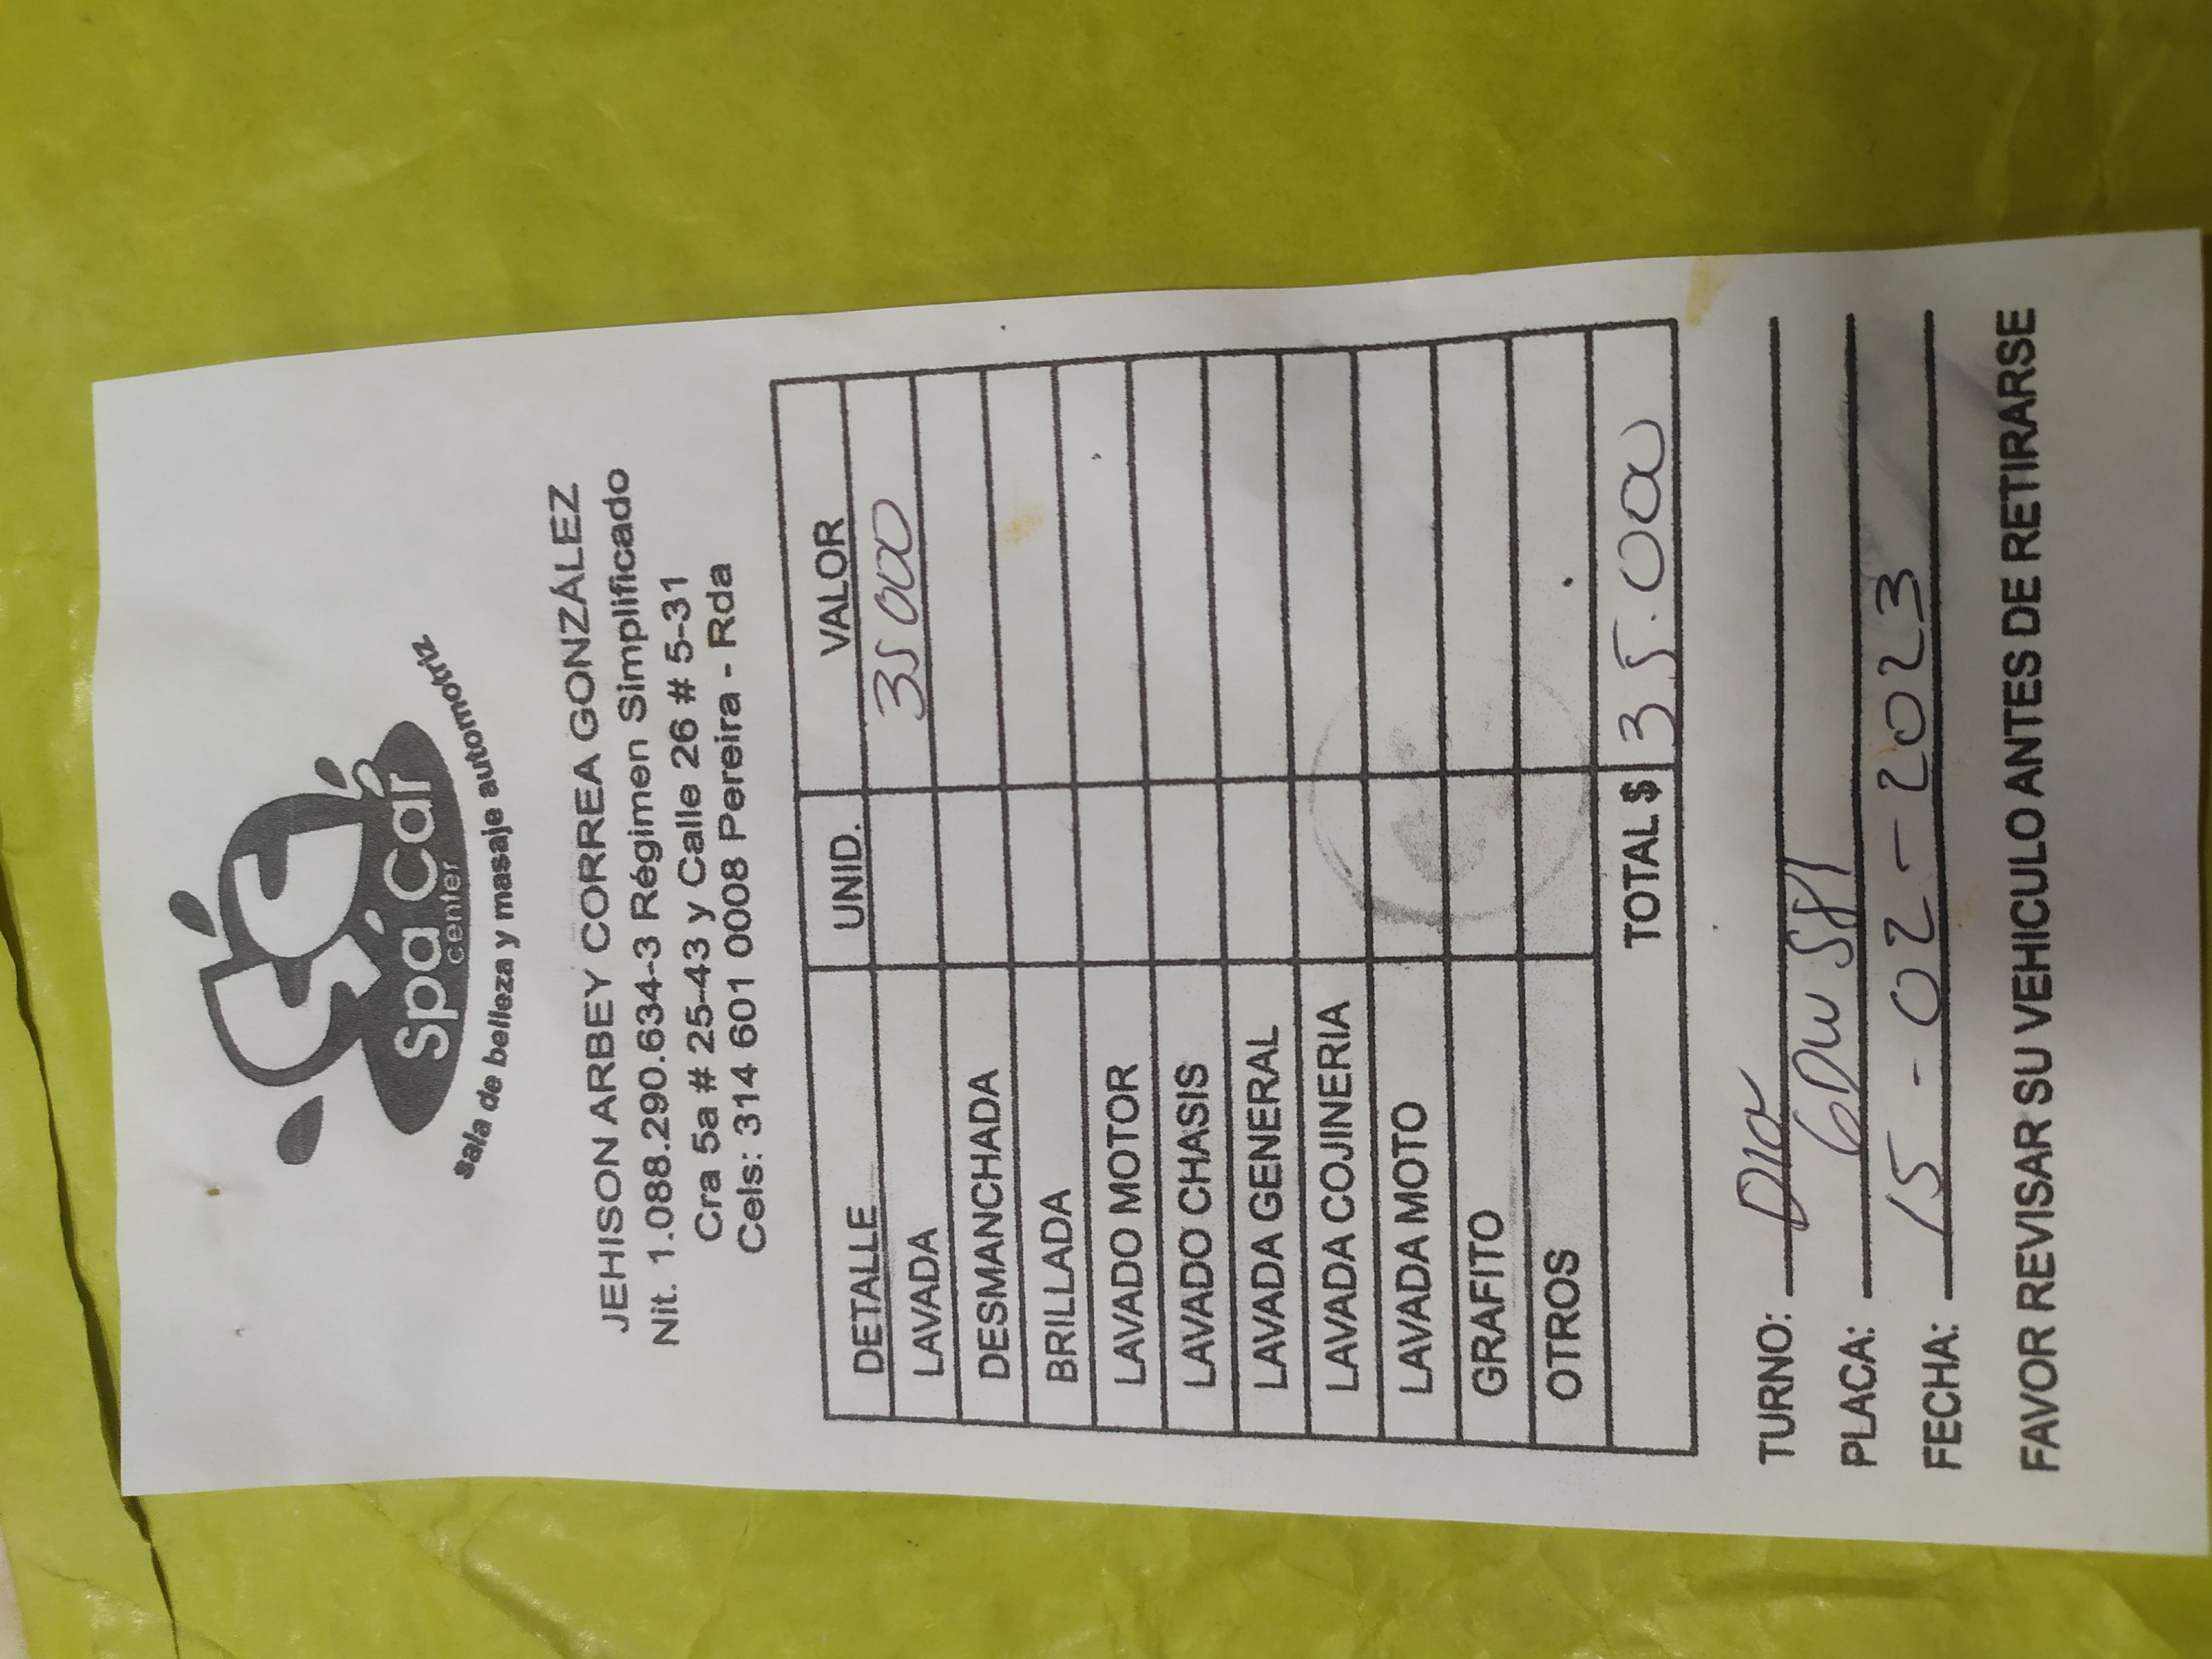 Spa Car
center
Sala de belleza y masaje automotriz
JEHISON ARBEY CORREA GONZÁLEZ
Nit. 1.088.290.634-3 Régimen Simplificado
Cra 5a # 25-43 y Calle 26 # 5-31
Cels: 314 601 0008 Pereira - Rda
DETALLE UNID. VALOR
LAVADA 35000
DESMANCHADA
BRILLADA
LAVADO MOTOR
LAVADO CHASIS
LAVADA GENERAL
LAVADA COJINERIA
LAVADA MOTO
GRAFITO
OTROS
TOTAL $ 35.000
TURNO: Dia
PLACA: GDW 581
FECHA: 15-02-2023
FAVOR REVISAR SU VEHICULO ANTES DE RETIRARSE